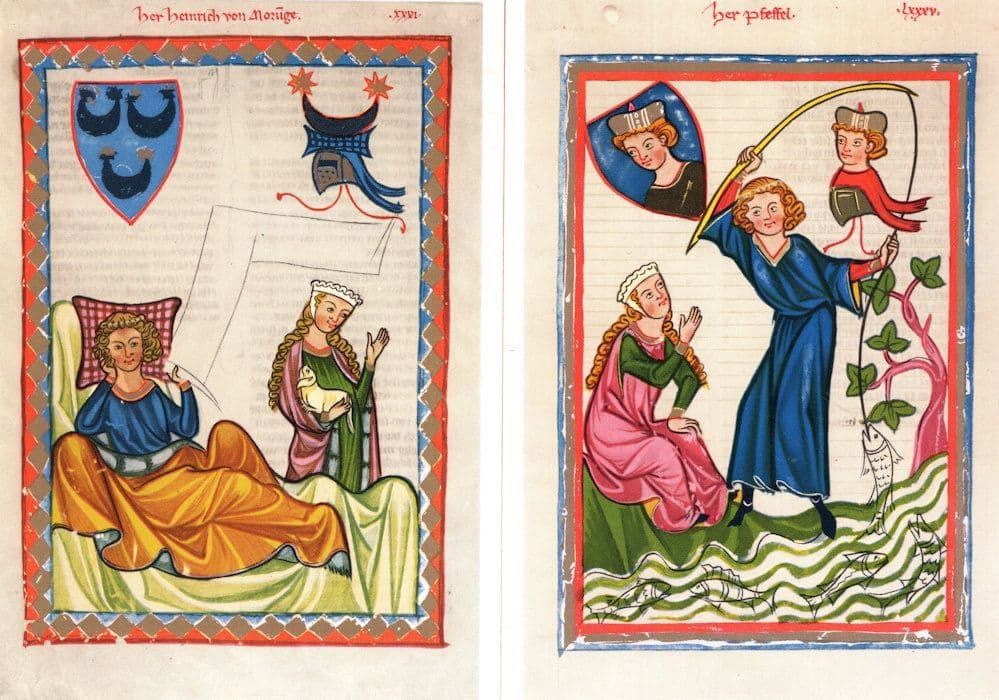 her Heinrich von Morūge.
.xxvi.
her Pfeffel.
.Lxxxv.